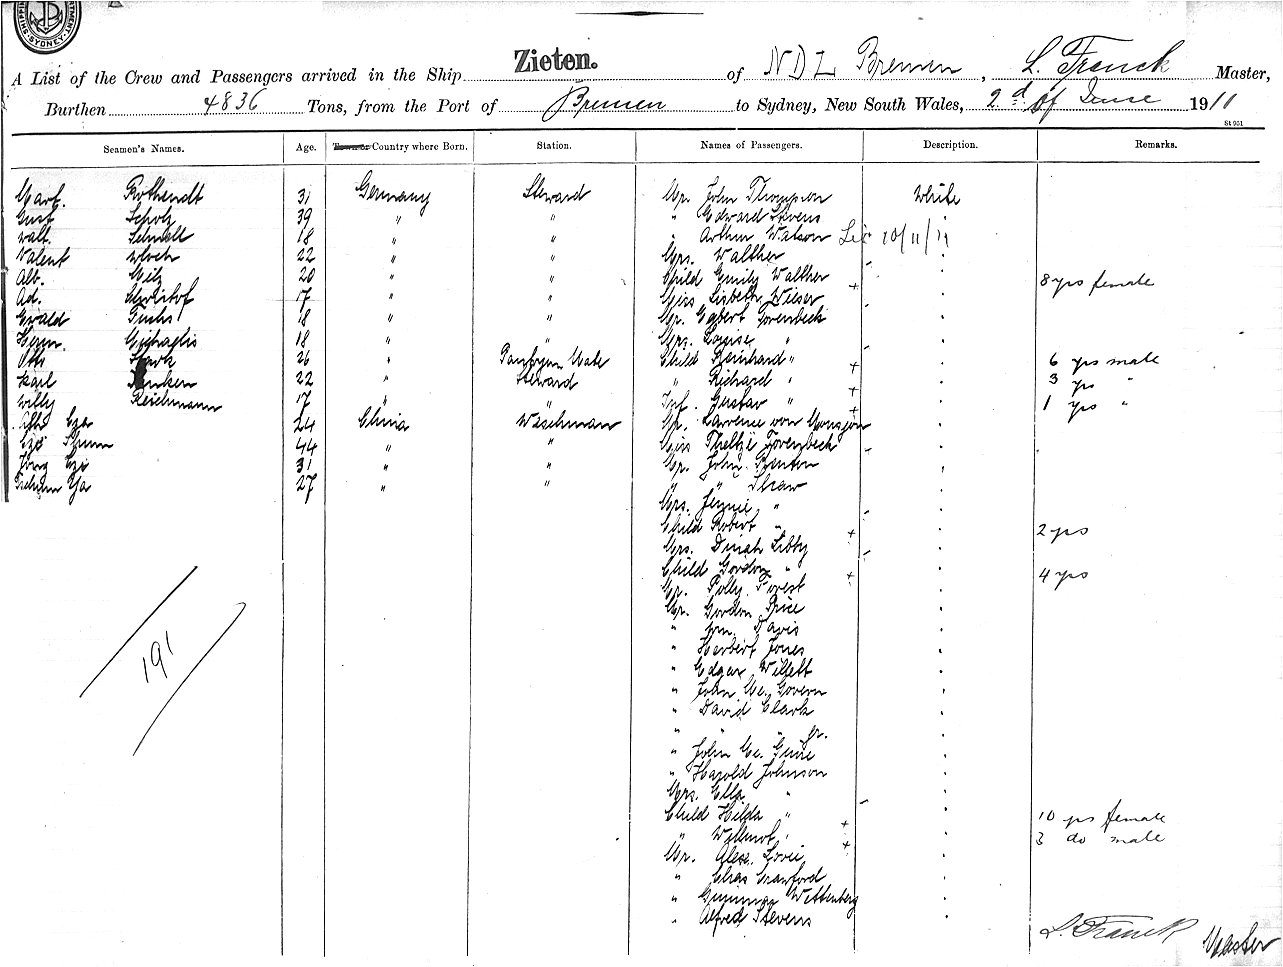 SYDNEY
A List of the Crew and Passengers arrived in the Ship Zieten. of NDL Bremen, L. Franck Master,
Burthen 4836 Tons, from the Port of Bremen to Sydney, New South Wales, 2d of June 1911
St 951
Seamen's Names. Age. Country where Born. Station. Names of Passengers. Description. Remarks.
31 Germany Steward Mr. John Thompson White
Gust. Scholz 39 " " " Edward Stevens
Walt. Schmidt 18 " " " Arthur Watson 10/11/11
Valent 22 " " Mrs. Walther
Alb. 20 " " Child Emily Walther + 8 yrs female
Ad. 17 " " Miss Lisbeth Wieser
Ewald Fuchs 18 " " Mr. Egbert Fovenbeck
Herm. Michaelis 18 " Mrs. Louise "
Otto Stark 26 " Pantryman Mate Child Reinhard " + 6 yrs male
Karl 22 " Steward " Richard " + 3 yrs "
Willy Reichmann 17 " " Inf. Gustav " + 1 yrs "
24 China Washman Mr. Lawrence von
44 " " Miss Fovenbeck
31 " " Mr. John Benton
27 " " " " Shaw
Mrs. Jennie "
Child Robert " + 2 yrs
Mrs. Dinah Libby
Child Gordon " + 4 yrs
Mr. Polly Forest
Mr. Gordon Price
" Wm. Davis
" Herbert Jones
" Edgar Willett
" John Mc. Govern
" David Clark
" " " Jr.
" John Mc. Guire
" Harold Johnson
Mrs. Ella "
Child Hilda " + 10 yrs female
" Wilmot " + 3 do male
Mr. Alex.
" Chas Crawford
" Wittenberg
" Alfred Stevens
191
L. Franck Master